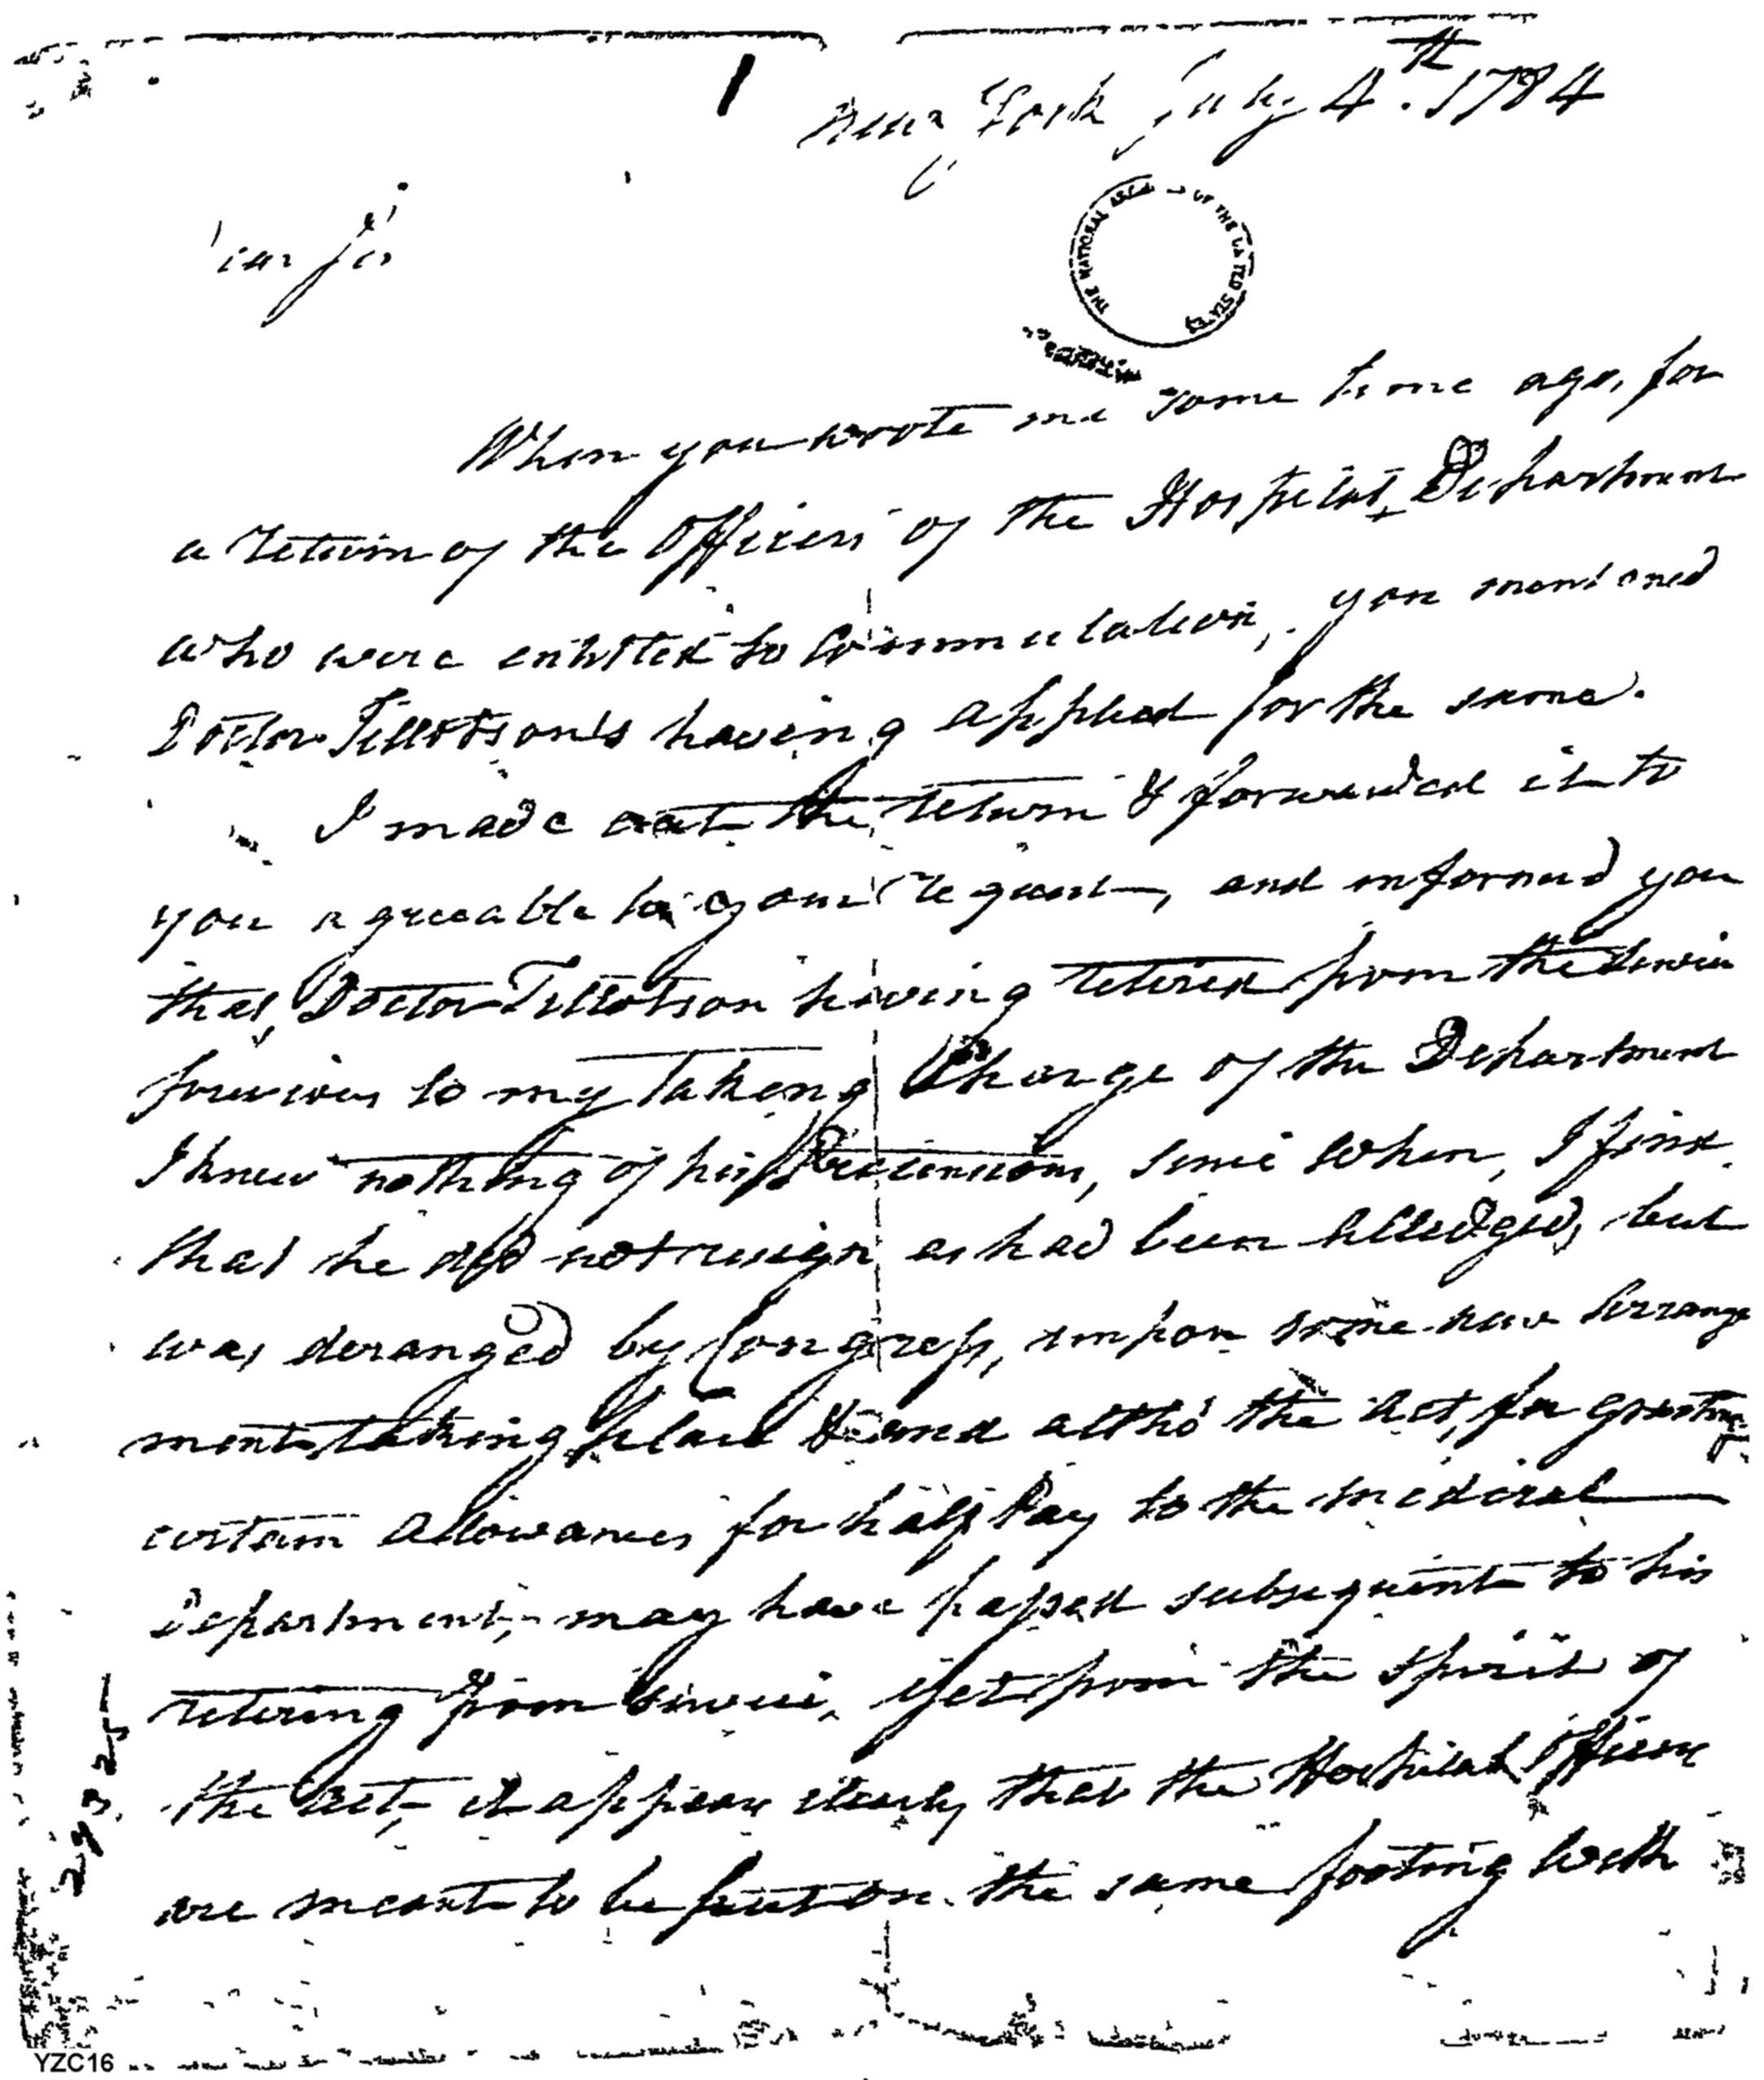 1
New York July 4th. 1784
THE NATIONAL OF THE UNITED STATES
ear Sir
When you wrote me some time ago, for
a return of the Officers of the Hospital Department
who were entitled to Commutation, you mentioned
Doctor Tillotson's having applied for the same.
I made out the return & forwarded it to
you agreeable to your request, and informed you
that, Doctor Tillotson having retired from the Service
previous to my taking Charge of the Department
I knew nothing of his Pretensions, since when, I find
that he did not resign as had been alledged, but
was deranged by Congress, upon some new Arrange
ments taking place & and altho' the act, for granting
certain allowances for half Pay to the medical
Department, may have passed subsequent to his
retiring from service, yet from the spirit of
the act, it appears clearly that the Hospital Officers
are meant to be put on the same footing with
YZC16